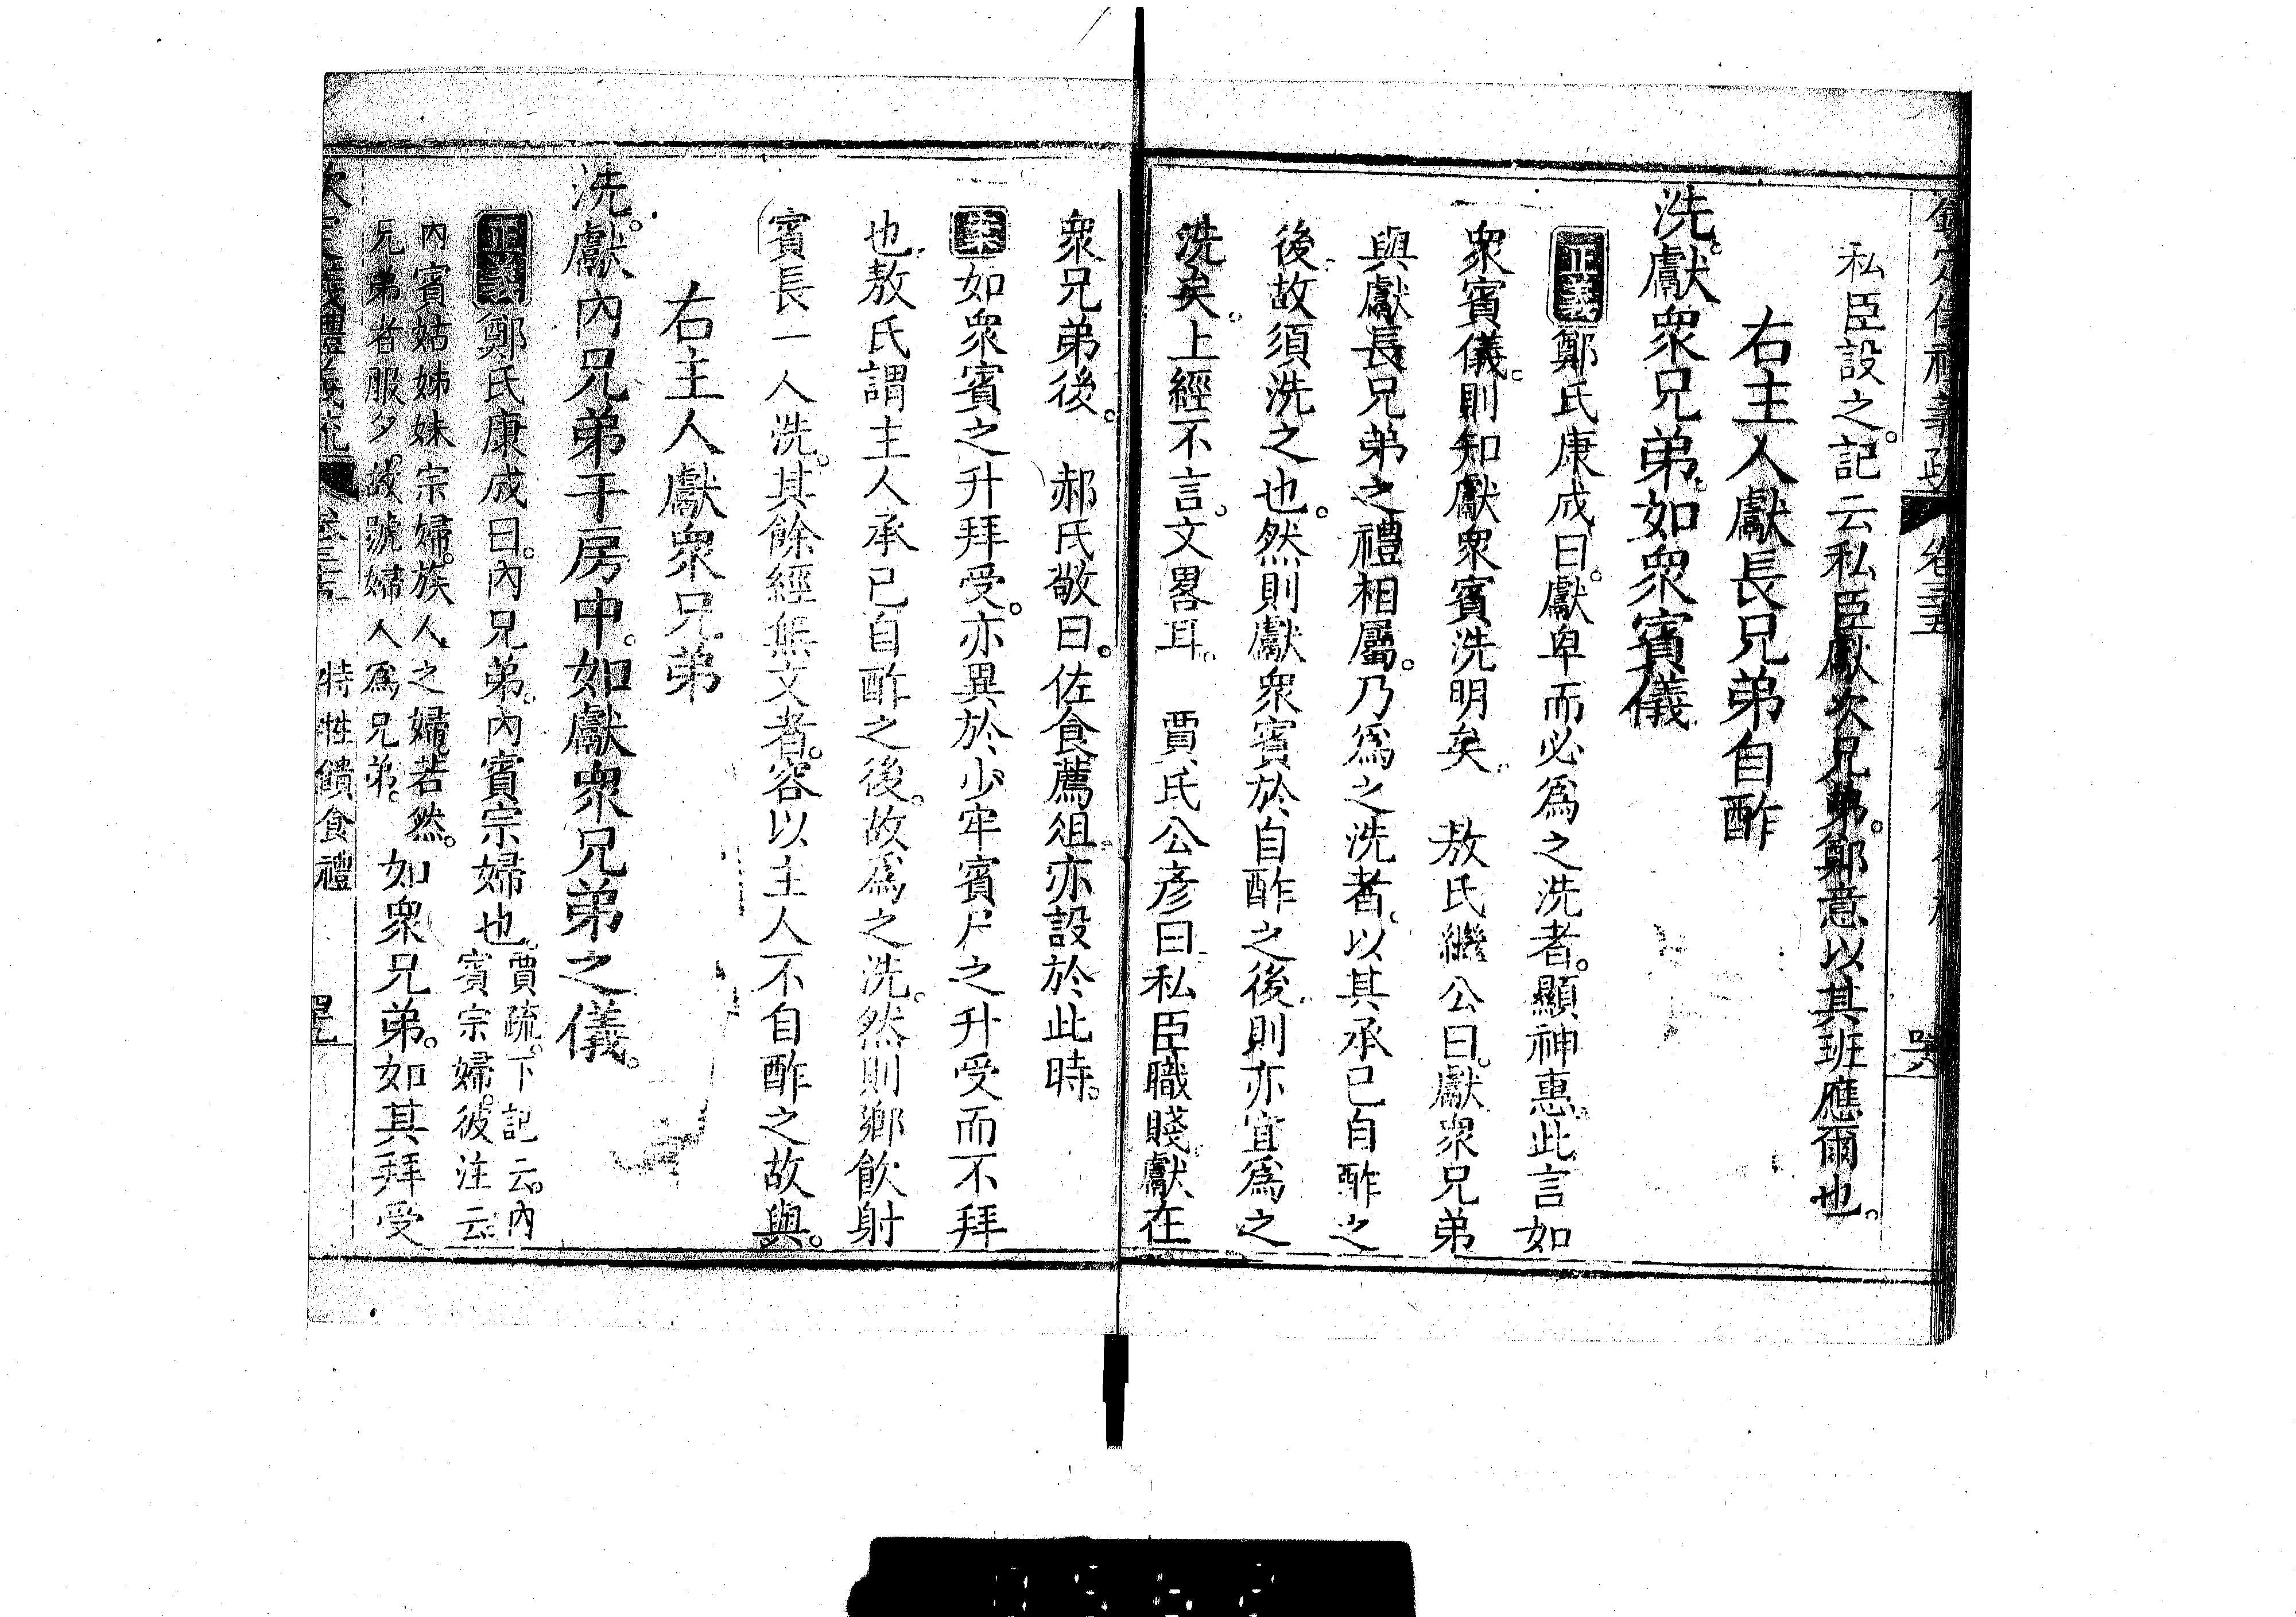 欽定儀禮義疏 卷三十五
私臣設之。記云私臣獻次兄弟。鄭意以其班應爾也。
右主人獻長兄弟自酢
洗。獻衆兄弟。如衆賓儀
正義鄭氏康成曰。獻卑而必爲之洗者。顯神惠。此言如
衆賓儀。則知獻衆賓洗明矣。 敖氏繼公曰。獻衆兄弟
與獻長兄弟之禮相屬。乃爲之洗者。以其承己自酢之
後。故須洗之也。然則獻衆賓於自酢之後。則亦宜爲之
洗矣。上經不言。文畧耳。 賈氏公彥曰私臣職賤。獻在
衆兄弟後。 郝氏敬曰。佐食薦俎。亦設於此時。
案如衆賓之升拜受。亦異於少牢賓尸之升受而不拜
也。敖氏謂主人承己自酢之後。故爲之洗。然則鄉飲射
賓長一人洗。其餘經無文者。容以主人不自酢之故與。
右主人獻衆兄弟
洗。獻內兄弟于房中。如獻衆兄弟之儀。
正義鄭氏康成曰。內兄弟。內賓宗婦也。賈疏。下記云。內
賓宗婦。彼注云。
內賓姑姊妹宗婦。族人之婦。若然。
兄弟者服夕。故號婦人爲兄弟。如衆兄弟。如其拜受
欽定儀禮義疏 卷三十五 特牲饋食禮